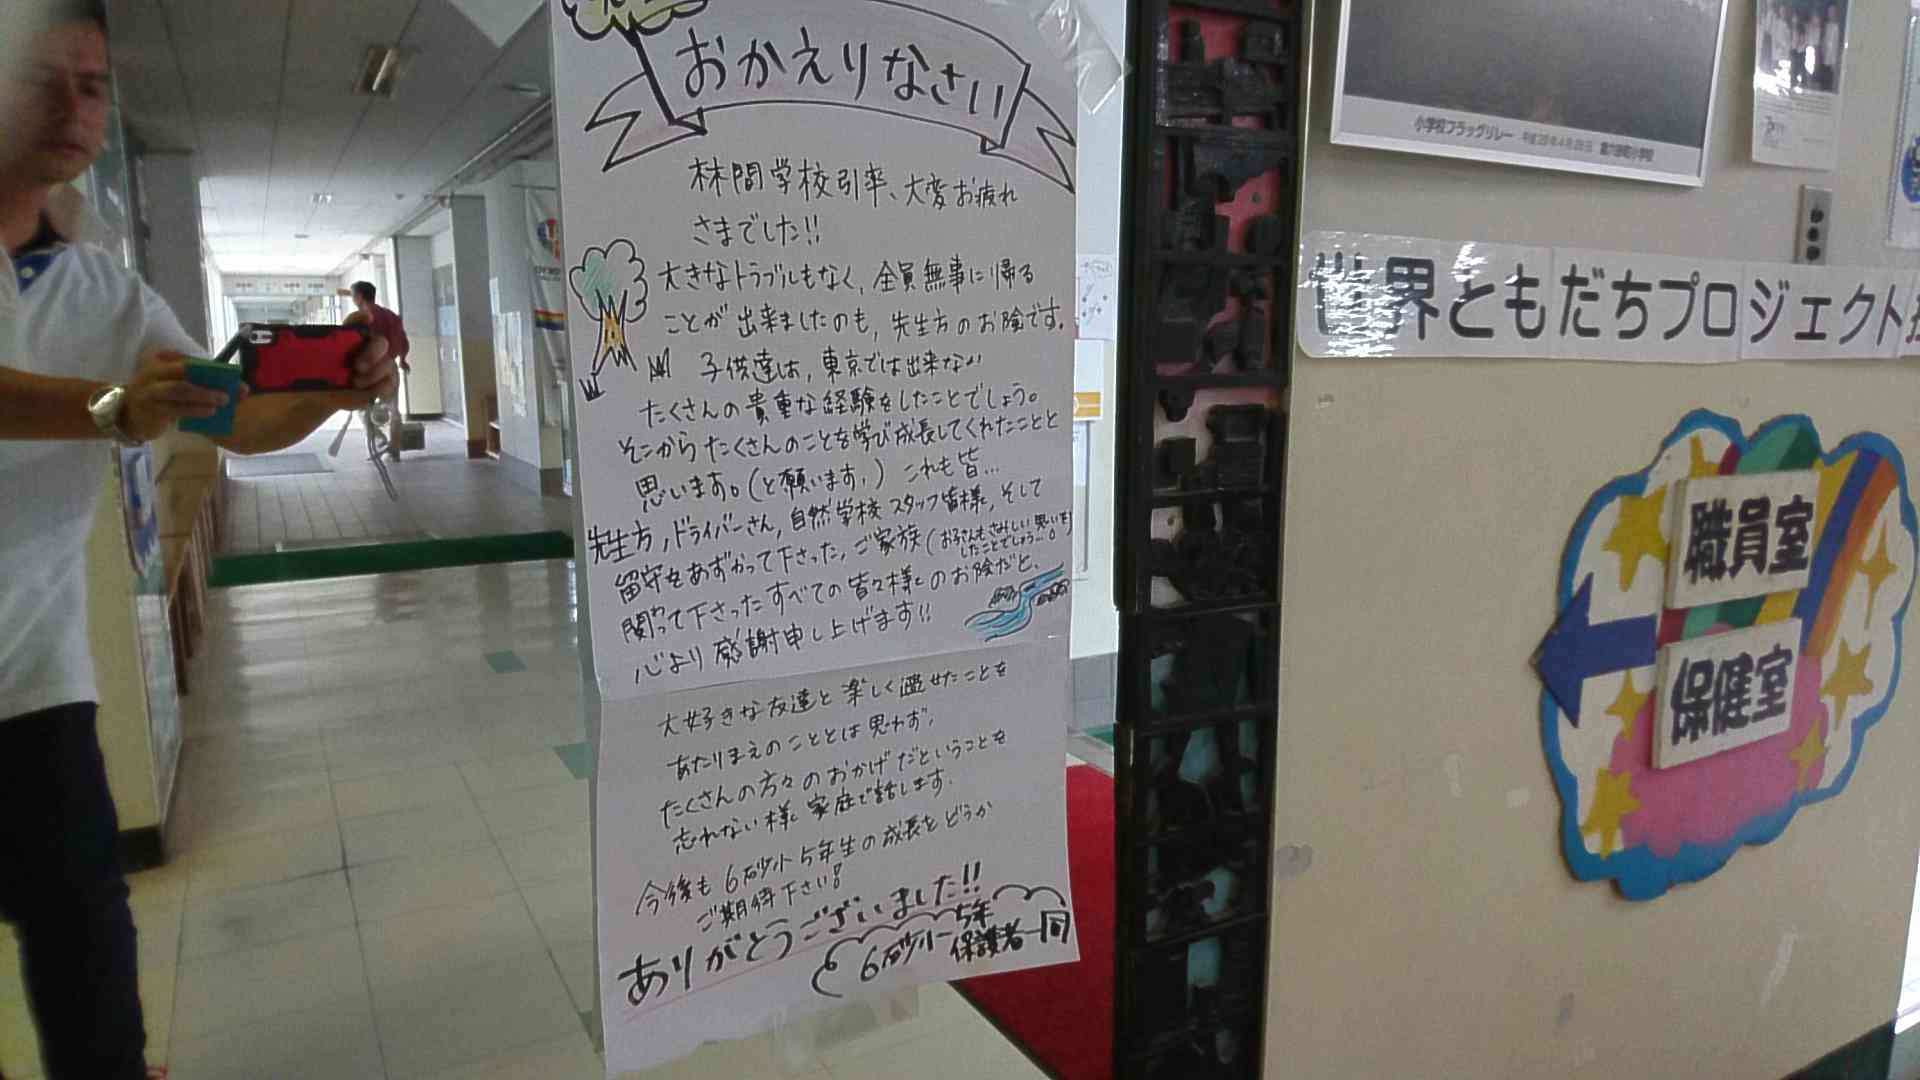 おかえりなさい
林間学校引率、大変お疲れ
さまでした!!
大きなトラブルもなく、全員無事に帰る
ことが出来ましたのも、先生方のお陰です。
子供達は、東京では出来ない
たくさんの貴重な経験をしたことでしょう。
そこからたくさんのことを学び成長してくれたことと
思います。(と願います。) これも皆…
先生方、ドライバーさん、自然学校スタッフ皆様、そして
留守をあずかって下さった、ご家族(お子さんもさみしい思いを
したことでしょう…。)
関わって下さったすべての皆々様のお陰だと、
心より感謝申し上げます!!
大好きな友達と楽しく過せたことを
あたりまえのこととは思わず、
たくさんの方々のおかげだということを
忘れない様、家庭で話します。
今後も6砂小5年生の成長をどうか
ご期待下さい!
ありがとうございました!!
6砂小5年
保護者一同
小学校フラッグリレー 平成28年4月
世界ともだちプロジェクト
職員室
保健室